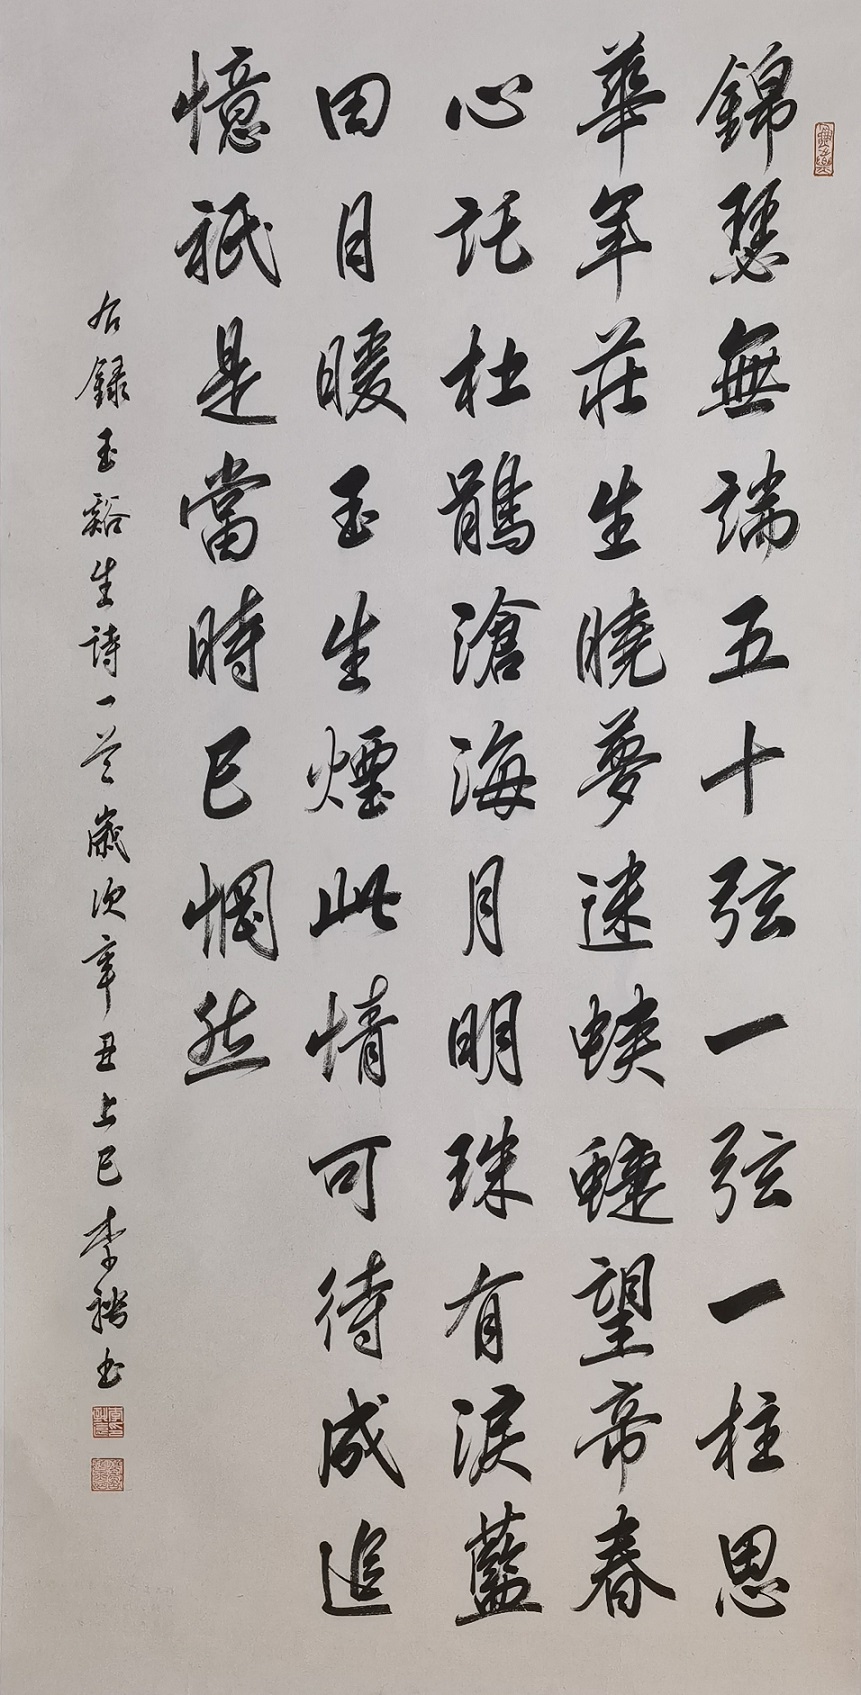 錦瑟無端五十弦一弦一柱思
華年莊生曉夢迷蝴蝶望帝春
心託杜鵑滄海月明珠有淚藍
田日暖玉生煙此情可待成追
憶祇是當時已惘然
右錄玉谿生詩一首歲次辛丑上巳李書